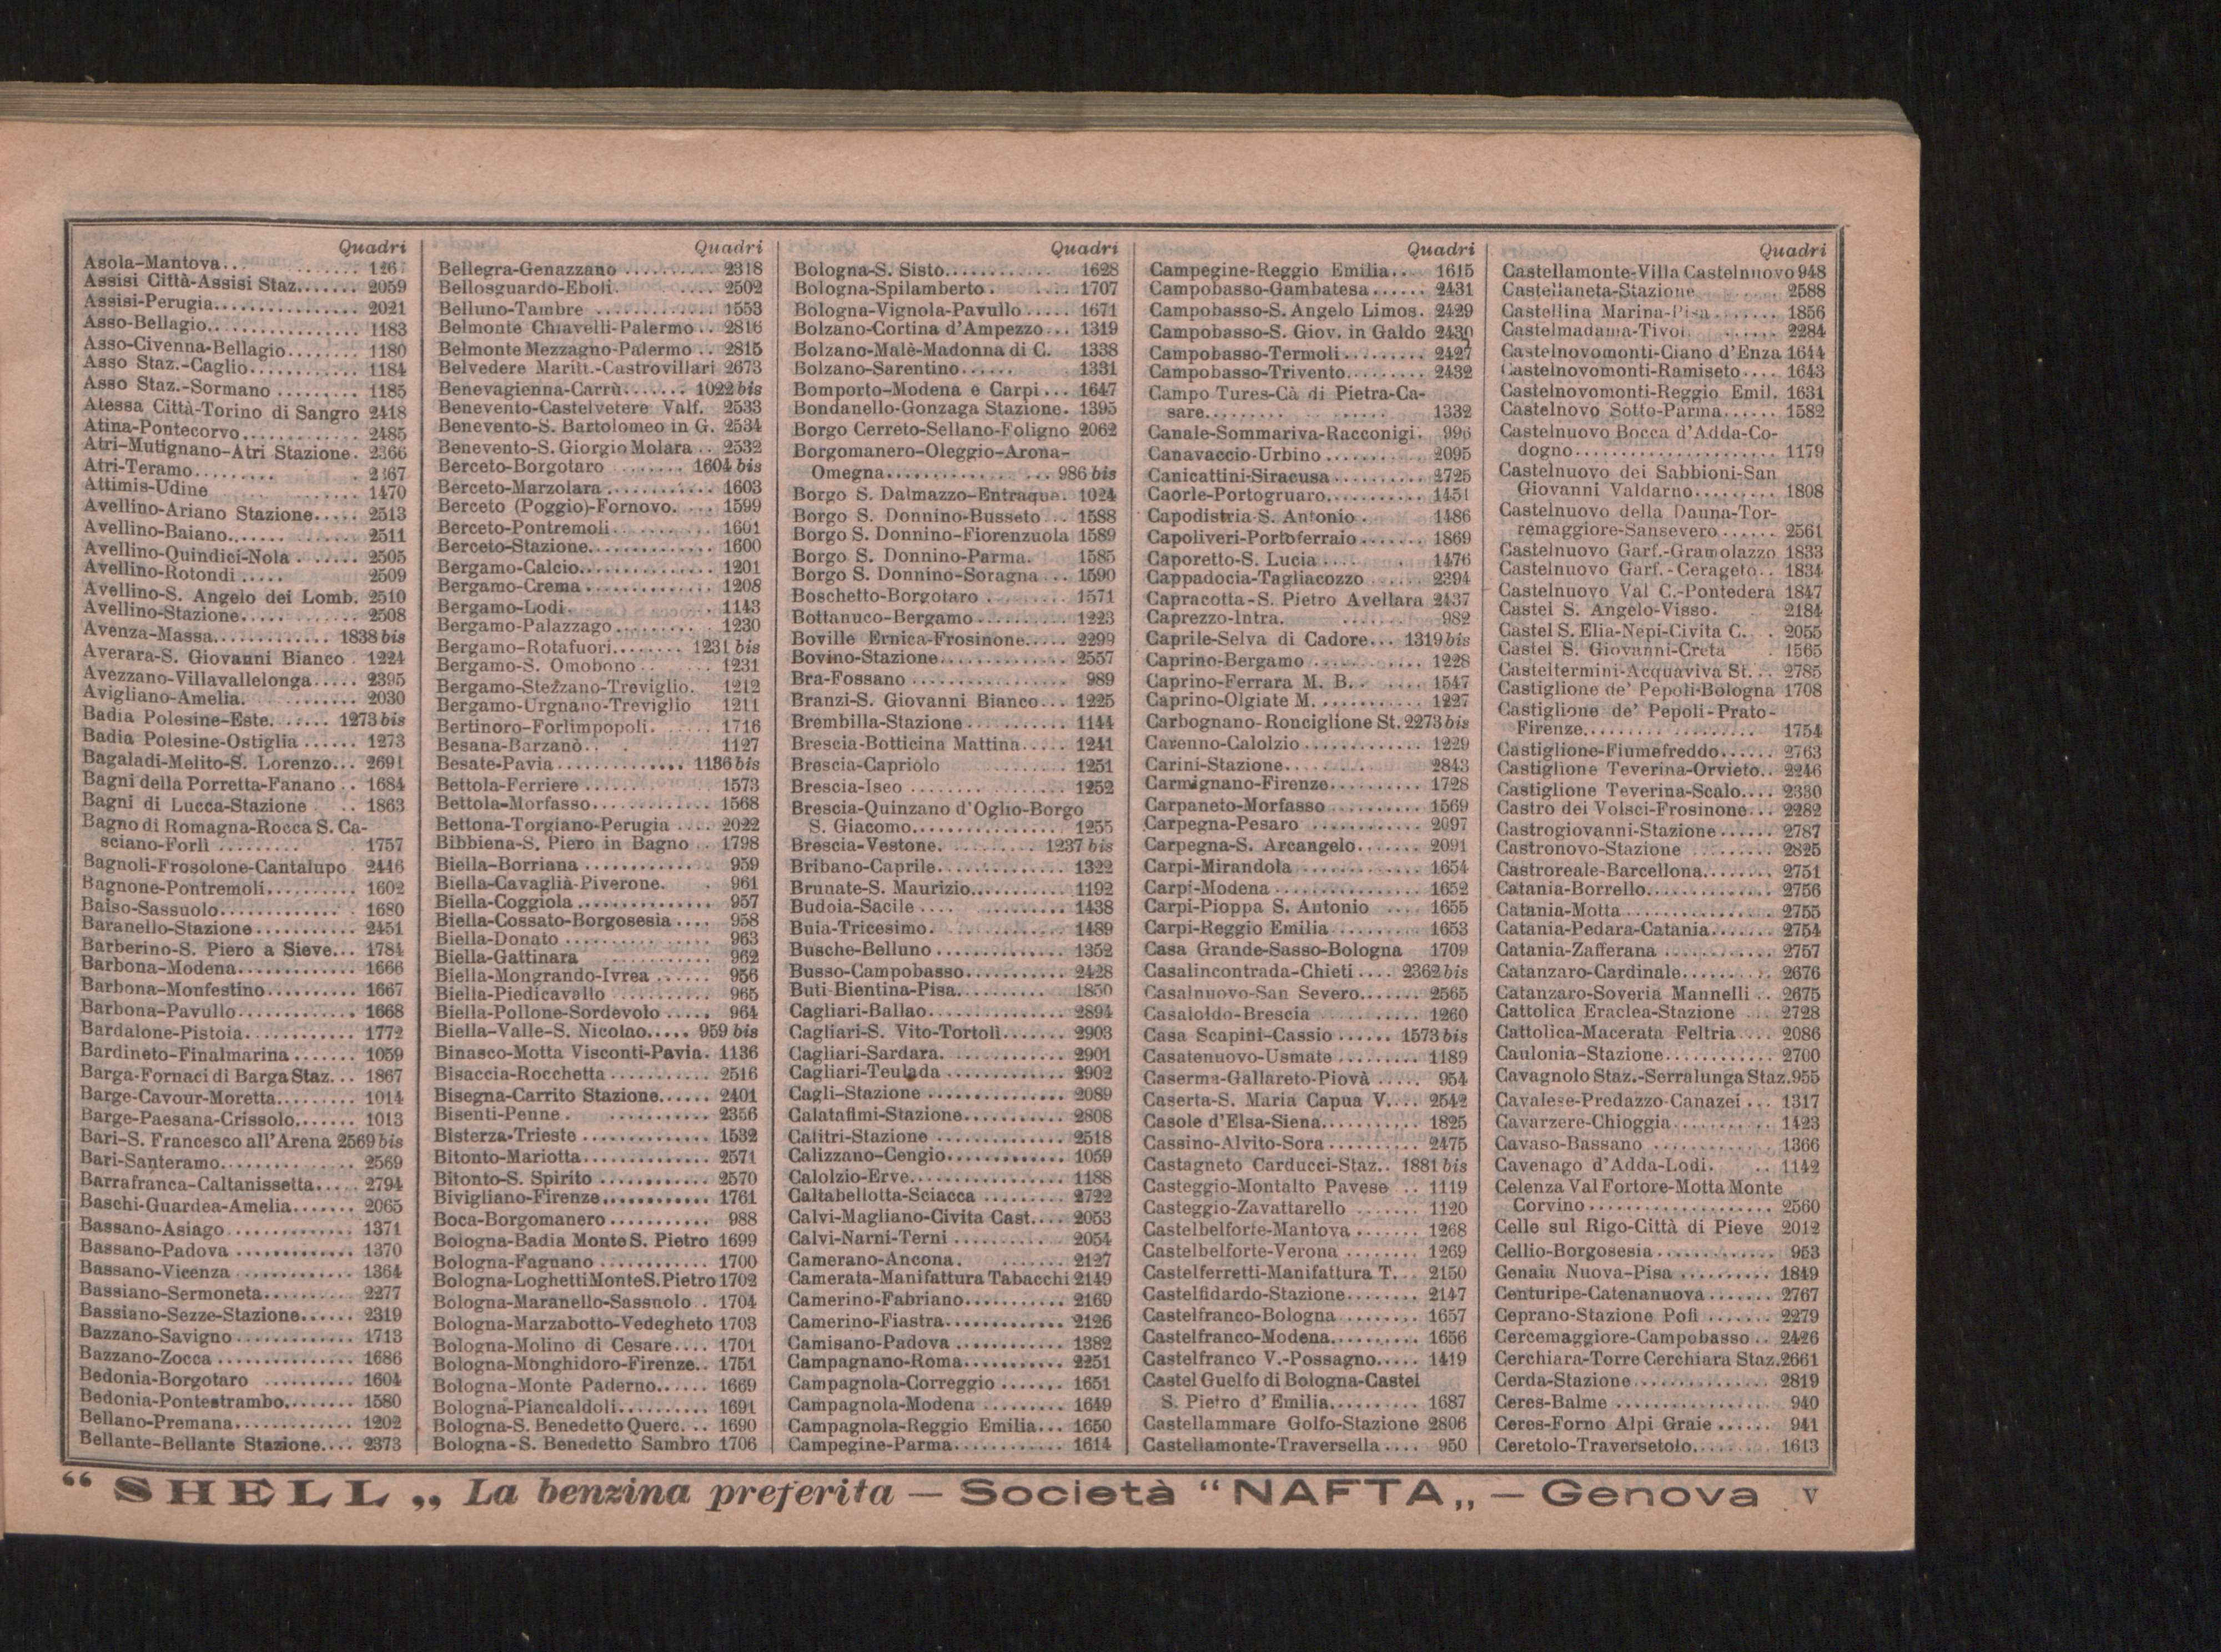 Quadri
Asola-Mantova... ....... 126
Assisi Città-Assisi Staz....... 2059
Assisi-Perugia............... 2021
Asso-Bellagio................ 1183
Asso-Civenna-Bellagio........ 1180
Asso Staz.-Caglio............ 1184
Asso Staz.-Sormano ......... 1185
Atessa Città-Torino di Sangro 2418
Atina-Pontecorvo............ 2485
Atri-Mutignano-Atri Stazione. 2366
Atri-Teramo........ . 2367
Attimis-Udine ....... 1470
Avellino-Ariano Stazione..... 2513
Avellino-Baiano...... ...... 2511
Avellino-Quindici-Nola . ..... 2505
Avellino-Rotondi ..... 2509
Avellino-S. Angelo dei Lomb. 2510
Avellino-Stazione..... ....... 2508
Avenza-Massa............ 1838 bis
Averara-S. Giovanni Bianco . 1224
Avezzano-Villavallelonga..... 2395
Avigliano-Amelia. ........ 2030
Badia Polesine-Este. ..... 1273 bis
Badia Polesine-Ostiglia ...... 1273
Bagaladi-Melito-S. Lorenzo... 2691
Bagni della Porretta-Fanano .. 1684
Bagni di Lucca-Stazione .. 1863
Bagno di Romagna-Rocca S. Ca-
sciano-Forlì ......... . 1757
Bagnoli-Frosolone-Cantalupo 2446
Bagnone-Pontremoli.......... 1602
Baiso-Sassuolo............. . 1680
Baranello-Stazione........... 2451
Barberino-S. Piero a Sieve... 1784
Barbona-Modena............. 1666
Barbona-Monfestino.......... 1667
Barbona-Pavullo............. 1668
Bardalone-Pistoia............ 1772
Bardineto-Finalmarina ....... 1059
Barga-Fornaci di Barga Staz... 1867
Barge-Cavour-Moretta......... 1014
Barge-Paesana-Crissolo....... 1013
Bari-S. Francesco all'Arena 2569 bis
Bari-Santeramo......... ... 2569
Barrafranca-Caltanissetta..... 2794
Baschi-Guardea-Amelia....... 2065
Bassano-Asiago.............. 1371
Bassano-Padova ............. 1370
Bassano-Vicenza ............ 1364
Bassiano-Sermoneta.......... 2277
Bassiano-Sezze-Stazione...... 2319
Bazzano-Savigno............. 1713
Bazzano-Zocca .............. 1686
Bedonia-Borgotaro .......... 1604
Bedonia-Pontestrambo........ 1580
Bellano-Premana............. 1202
Bellante-Bellante Stazione.... 2373
Quadri
Bellegra-Genazzano .......... 2318
Bellosguardo-Eboli. .... 2502
Belluno-Tambre ............. 1553
Belmonte Chiavelli-Palermo .. 2816
Belmonte Mezzagno-Palermo .. 2815
Belvedere Maritt.-Castrovillari 2673
Benevagienna-Carrù....... 1022 bis
Benevento-Castelvetere Valf. 2533
Benevento-S. Bartolomeo in G. 2534
Benevento-S. Giorgio Molara .. 2532
Berceto-Borgotaro ....... 1604 bis
Berceto-Marzolara........... 1603
Berceto (Poggio)-Fornovo. ... 1599
Berceto-Pontremoli.......... 1601
Berceto-Stazione............. 1600
Bergamo-Calcio.............. 1201
Bergamo-Crema............. 1208
Bergamo-Lodi. . 1143
Bergamo-Palazzago......... . 1230
Bergamo-Rotafuori........ 1231 bis
Bergamo-S. Omobono .. .. 1231
Bergamo-Stezzano-Treviglio. 1212
Bergamo-Urgnano-Treviglio 1211
Bertinoro-Forlimpopoli. ..... 1716
Besana-Barzanò.. . 1127
Besate-Pavia............. 1136 bis
Bettola-Ferriere ...... 1573
Bettola-Morfasso............. 1568
Bettona-Torgiano-Perugia .... 2022
Bibbiena-S. Piero in Bagno .. 1798
Biella-Borriana ............ 959
Biella-Cavaglià-Piverone. . 961
Biella-Coggiola .............. 957
Biella-Cossato-Borgosesia .... 958
Biella-Donato .............. 963
Biella-Gattinara .......... 962
Biella-Mongrando-Ivrea ...... 956
Biella-Piedicavallo .......... 965
Biella-Pollone-Sordevolo ..... 964
Biella-Valle-S. Nicolao..... 959 bis
Binasco-Motta Visconti-Pavia. 1136
Bisaccia-Rocchetta ........... 2516
Bisegna-Carrito Stazione...... 2401
Bisenti-Penne . .......... 2356
Bisterza-Trieste ............. 1532
Bitonto-Mariotta............. 2571
Bitonto-S. Spirito ........... 2570
Bivigliano-Firenze............ 1761
Boca-Borgomanero .......... 988
Bologna-Badia Monte S. Pietro 1699
Bologna-Fagnano ............ 1700
Bologna-Loghetti Monte S. Pietro 1702
Bologna-Maranello-Sassuolo .. 1704
Bologna-Marzabotto-Vedegheto 1703
Bologna-Molino di Cesare.... 1701
Bologna-Monghidoro-Firenze.. 1751
Bologna-Monte Paderno...... 1669
Bologna-Piancaldoli.......... 1691
Bologna-S. Benedetto Querc. .. 1690
Bologna-S. Benedetto Sambro 1706
Quadri
Bologna-S. Sisto............ 1628
Bologna-Spilamberto . .... 1707
Bologna-Vignola-Pavullo ..... 1671
Bolzano-Cortina d'Ampezzo... 1319
Bolzano-Malè-Madonna di C. 1338
Bolzano-Sarentino...... . 1331
Bomporto-Modena e Carpi... 1647
Bondanello-Gonzaga Stazione. 1395
Borgo Cerreto-Sellano-Foligno 2062
Borgomanero-Oleggio-Arona-
Omegna................ 986 bis
Borgo S. Dalmazzo-Entraque. 1024
Borgo S. Donnino-Busseto ... 1588
Borgo S. Donnino-Fiorenzuola 1589
Borgo S. Donnino-Parma. 1585
Borgo S. Donnino-Soragna ... 1590
Boschetto-Borgotaro ......... 1571
Bottanuco-Bergamo.......... 1223
Boville Ernica-Frosinone..... 2299
Bovino-Stazione.............. 2557
Bra-Fossano ................ 989
Branzi-S. Giovanni Bianco... 1225
Brembilla-Stazione........... 1144
Brescia-Botticina Mattina..... 1241
Brescia-Capriolo ........ 1251
Brescia-Iseo ........ ....... 1252
Brescia-Quinzano d'Oglio-Borgo
S. Giacomo................ 1255
Brescia-Vestone. ......... 1237 bis
Bribano-Caprile.............. 1322
Brunate-S. Maurizio.......... 1192
Budoia-Sacile .... ......... 1438
Buia-Tricesimo. ............ 1489
Busche-Belluno ............. 1352
Busso-Campobasso........... 2428
Buti-Bientina-Pisa.......... 1850
Cagliari-Ballao.............. 2894
Cagliari-S. Vito-Tortolì....... 2903
Cagliari-Sardara. ........... 2901
Cagliari-Teulada ............ 2902
Cagli-Stazione .............. 2089
Calatafimi-Stazione........... 2808
Calitri-Stazione ............. 2518
Calizzano-Cengio............ 1059
Calolzio-Erve................ 1188
Caltabellotta-Sciacca ......... 2722
Calvi-Magliano-Civita Cast.... 2053
Calvi-Narni-Terni ........... 2054
Camerano-Ancona. ....... 2127
Camerata-Manifattura Tabacchi 2149
Camerino-Fabriano........... 2169
Camerino-Fiastra............. 2126
Camisano-Padova ............ 1382
Campagnano-Roma........... 2251
Campagnola-Correggio ....... 1651
Campagnola-Modena ......... 1649
Campagnola-Reggio Emilia... 1650
Campegine-Parma............ 1614
Quadri
Campegine-Reggio Emilia.. 1615
Campobasso-Gambatesa...... 2431
Campobasso-S. Angelo Limos. 2429
Campobasso-S. Giov. in Galdo 2430
Campobasso-Termoli......... 2427
Campobasso-Trivento......... 2432
Campo Tures-Cà di Pietra-Ca-
sare........ ...... 1332
Canale-Sommariva-Racconigi. 996
Canavaccio-Urbino .......... 2095
Canicattini-Siracusa.......... 2725
Caorle-Portogruaro........... 1451
Capodistria-S. Antonio . 1486
Capoliveri-Portoferraio....... 1869
Caporetto-S. Lucia .... . 1476
Cappadocia-Tagliacozzo ..... 2394
Capracotta-S. Pietro Avellara 2437
Caprezzo-Intra. ........ 982
Caprile-Selva di Cadore... 1319 bis
Caprino-Bergamo ........... 1228
Caprino-Ferrara M. B. . .... 1547
Caprino-Olgiate M. .......... 1227
Carbognano-Ronciglione St. 2273 bis
Carenno-Calolzio............ 1229
Carini-Stazione......... 2843
Carmignano-Firenze.......... 1728
Carpaneto-Morfasso ......... 1569
Carpegna-Pesaro ........... 2097
Carpegna-S. Arcangelo....... 2091
Carpi-Mirandola ............ 1654
Carpi-Modena .............. 1652
Carpi-Pioppa S. Antonio .... 1655
Carpi-Reggio Emilia ......... 1653
Casa Grande-Sasso-Bologna 1709
Casalincontrada-Chieti .... 2362 bis
Casalnuovo-San Severo....... 2565
Casaloldo-Brescia ........... 1260
Casa Scapini-Cassio ...... 1573 bis
Casatenuovo-Usmate ......... 1189
Caserma-Gallareto-Piovà ..... 954
Caserta-S. Maria Capua V.... 2542
Casole d'Elsa-Siena.......... 1825
Cassino-Alvito-Sora ......... 2475
Castagneto Carducci-Staz.. 1881 bis
Casteggio-Montalto Pavese .. 1119
Casteggio-Zavattarello ....... 1120
Castelbelforte-Mantova ....... 1268
Castelbelforte-Verona ........ 1269
Castelferretti-Manifattura T. . 2150
Castelfidardo-Stazione........ 2147
Castelfranco-Bologna ........ 1657
Castelfranco-Modena.......... 1656
Castelfranco V.-Possagno..... 1419
Castel Guelfo di Bologna-Castel
S. Pietro d'Emilia.......... 1687
Castellammare Golfo-Stazione 2806
Castellamonte-Traversella .... 950
Quadri
Castellamonte-Villa Castelnuovo 948
Castellaneta-Stazione ..... 2588
Castellina Marina-Pisa....... 1856
Castelmadama-Tivoli ...... 2284
Castelnovomonti-Ciano d'Enza 1644
Castelnovomonti-Ramiseto.... 1643
Castelnovomonti-Reggio Emil. 1631
Castelnovo Sotto-Parma...... 1582
Castelnuovo Bocca d'Adda-Co-
dogno..................... 1179
Castelnuovo dei Sabbioni-San
Giovanni Valdarno......... 1808
Castelnuovo della Dauna-Tor-
remaggiore-Sansevero ...... 2561
Castelnuovo Garf.-Gramolazzo 1833
Castelnuovo Garf.-Cerageto.. 1834
Castelnuovo Val C.-Pontedera 1847
Castel S. Angelo-Visso. 2184
Castel S. Elia-Nepi-Civita C. . 2055
Castel S. Giovanni-Creta . 1565
Casteltermini-Acquaviva St. .. 2785
Castiglione de' Pepoli-Bologna 1708
Castiglione de' Pepoli-Prato-
Firenze................... 1754
Castiglione-Fiumefreddo...... 2763
Castiglione Teverina-Orvieto.. 2246
Castiglione Teverina-Scalo.... 2330
Castro dei Volsci-Frosinone... 2282
Castrogiovanni-Stazione ...... 2787
Castronovo-Stazione ......... 2825
Castroreale-Barcellona........ 2751
Catania-Borrello............. 2756
Catania-Motta ............... 2755
Catania-Pedara-Catania....... 2754
Catania-Zafferana ........... 2757
Catanzaro-Cardinale.......... 2676
Catanzaro-Soveria Mannelli .. 2675
Cattolica Eraclea-Stazione ... 2728
Cattolica-Macerata Feltria .... 2086
Caulonia-Stazione............ 2700
Cavagnolo Staz.-Serralunga Staz. 955
Cavalese-Predazzo-Canazei ... 1317
Cavarzere-Chioggia........... 1423
Cavaso-Bassano ............ 1366
Cavenago d'Adda-Lodi. .. 1142
Celenza Val Fortore-Motta Monte
Corvino ................... 2560
Celle sul Rigo-Città di Pieve 2012
Cellio-Borgosesia............ 953
Cenaia Nuova-Pisa .......... 1849
Centuripe-Catenanuova ....... 2767
Ceprano-Stazione Pofi ....... 2279
Cercemaggiore-Campobasso .. 2426
Cerchiara-Torre Cerchiara Staz. 2661
Cerda-Stazione.............. 2819
Ceres-Balme ................ 940
Ceres-Forno Alpi Graie ...... 941
Ceretolo-Traversetolo......... 1613
“ SHELL „ La benzina preferita — Società “ NAFTA „ — Genova V